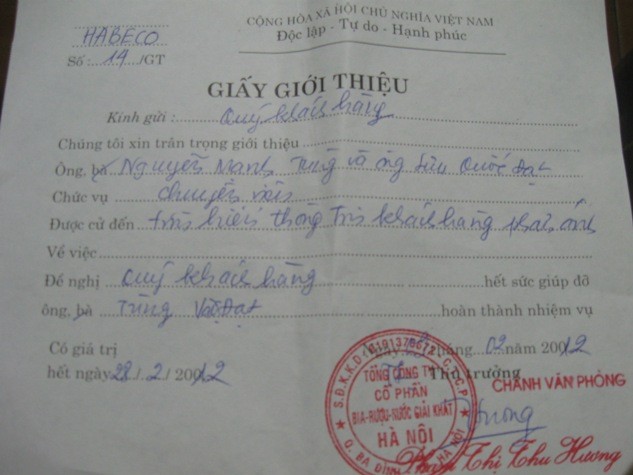 CỘNG HÒA XÃ HỘI CHỦ NGHĨA VIỆT NAM
HABECO
Độc lập - Tự do - Hạnh phúc
Số: 19 /GT
GIẤY GIỚI THIỆU
Kính gửi : Quý khách hàng
Chúng tôi xin trân trọng giới thiệu
Ông, bà Nguyễn Mạnh Tùng và ông Lưu Quốc Đạt
Chức vụ chuyên viên
Được cử đến tìm hiểu thông tin khách hàng phản ánh
Về việc
Đề nghị Quý khách hàng hết sức giúp đỡ
ông, bà Tùng và Đạt hoàn thành nhiệm vụ
Có giá trị
tháng 02 năm 2012
hết ngày 28 / 2 / 2012
Thủ trưởng
CHÁNH VĂN PHÒNG
TỔNG CÔNG TY
CỔ PHẦN
BIA-RƯỢU-NƯỚC GIẢI KHÁT
HÀ NỘI
Phạm Thị Thu Hương